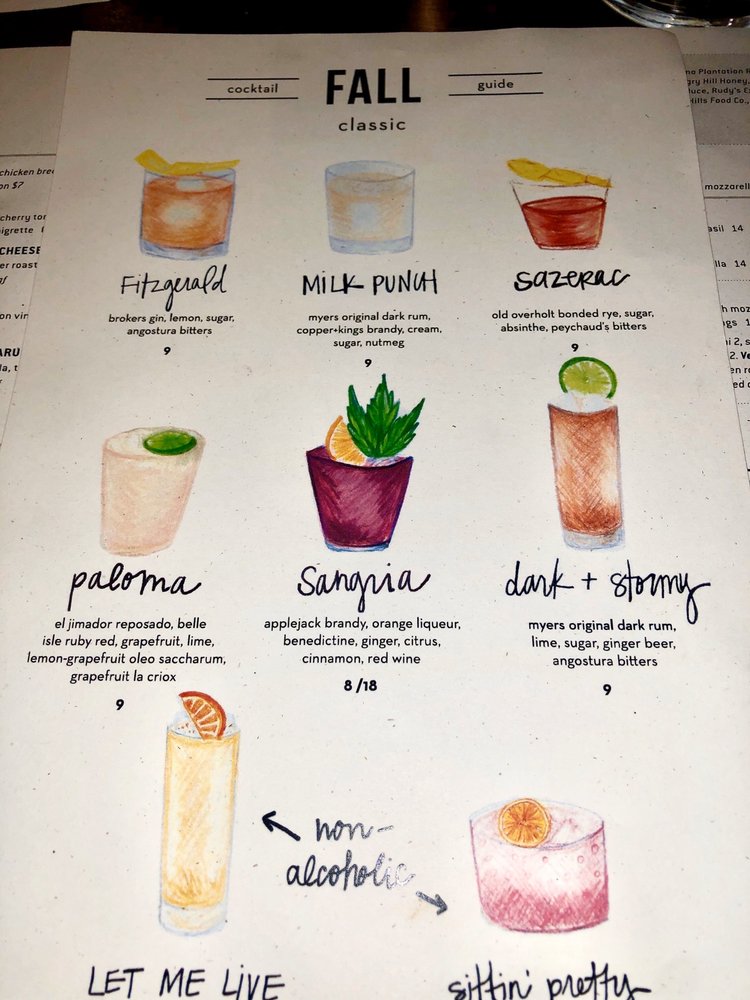 cocktail FALL guide
classic
Fitzgerald
brokers gin, lemon, sugar,
angostura bitters
9
MILK PUNCH
myers original dark rum,
copper+kings brandy, cream,
sugar, nutmeg
9
sazerac
old overholt bonded rye, sugar,
absinthe, peychaud's bitters
9
paloma
el jimador reposado, belle
isle ruby red, grapefruit, lime,
lemon-grapefruit oleo saccharum,
grapefruit la criox
9
Sangria
applejack brandy, orange liqueur,
benedictine, ginger, citrus,
cinnamon, red wine
8 /18
dark + stormy
myers original dark rum,
lime, sugar, ginger beer,
angostura bitters
9
non-
alcoholic
LET ME LIVE
sittin' pretty
chicken
on $7
cherry
CHEESE
er roast
on vin
Plantation
gry Hill Honey,
uce, Rudy's
Hills Food Co.,
mozzarell
asil 14
lla 14